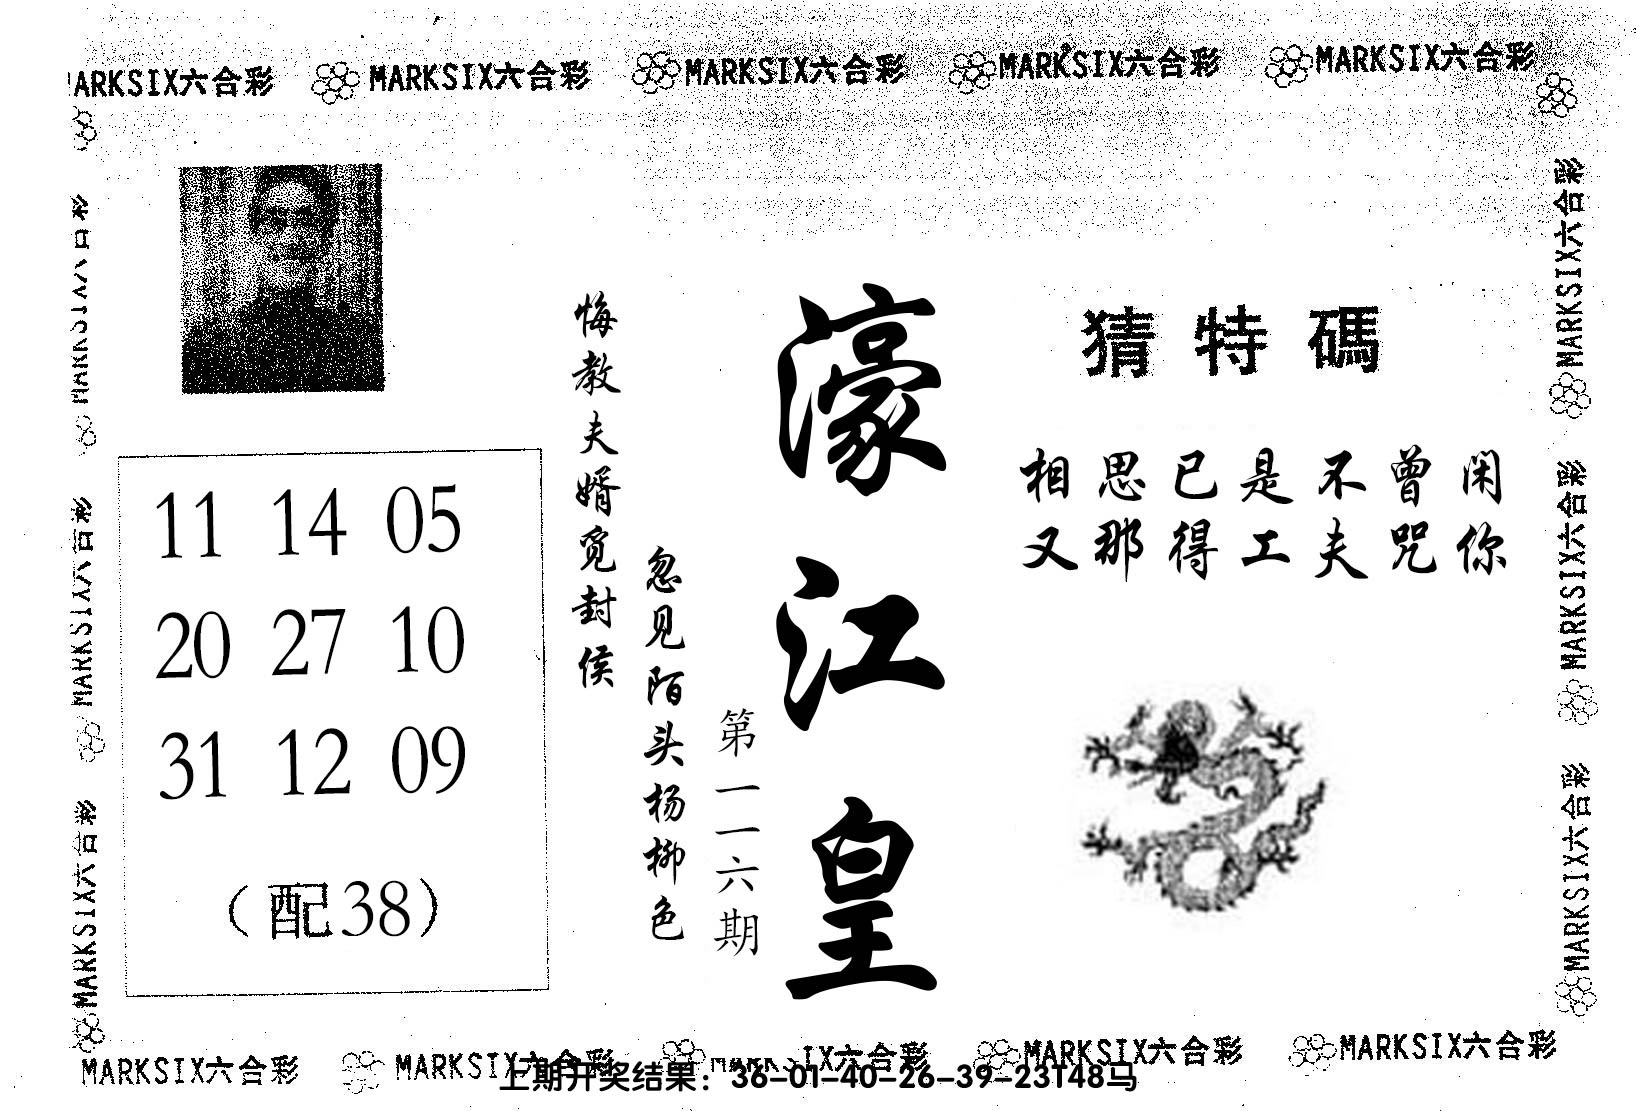 MARKSIX六合彩 MARKSIX六合彩 MARKSIX六合彩 MARKSIX六合彩 MARKSIX六合彩
猜特碼
相思已是不曾闲
又那得工夫咒你
濠江皇
第一一六期
忽见陌头杨柳色
悔教夫婿觅封侯
11 14 05
20 27 10
31 12 09
（配38）
MARKSIX六合彩
MARKSIX六合彩
MARKSIX六合彩
MARKSIX六合彩
MARKSIX六合彩
MARKSIX六合彩
MARKSIX六合彩 MARKSIX六合彩 MARKSIX六合彩 MARKSIX六合彩 MARKSIX六合彩
上期开奖结果：36-01-40-26-39-23T48马